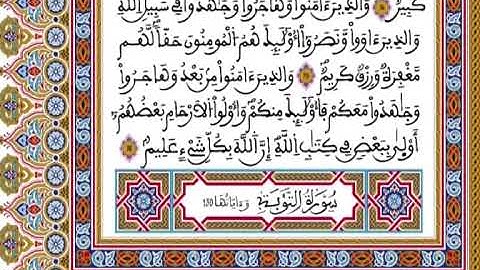 كَبِيرٌ ۞ وَالذِينَ ءَامَنُواْ وَهَاجَرُواْ وَجَٰهَدُواْ فِي سَبِيلِ اِ۬للَّهِ
وَالذِينَ ءَاوَواْ وَّنَصَرُوٓاْ أُوْلَٰٓئِكَ هُمُ اُ۬لْمُومِنُونَ حَقّاٗ لَّهُم
مَّغْفِرَةٞ وَرِزْقٞ كَرِيمٞ ۞ وَالذِينَ ءَامَنُواْ مِنۢ بَعْدُ وَهَاجَرُواْ
وَجَٰهَدُواْ مَعَكُمْ فَأُوْلَٰٓئِكَ مِنكُمْۖ وَأُوْلُواْ اُ۬لَارْحَامِ بَعْضُهُمُۥٓ
أَوْلَىٰ بِبَعْضٖ فِي كِتَٰبِ اِ۬للَّهِۖ إِنَّ اَ۬للَّهَ بِكُلِّ شَےْءٍ عَلِيمٞ ۞
سُورَةُ التَّوْبَةِ وَءَايَاتُهَا